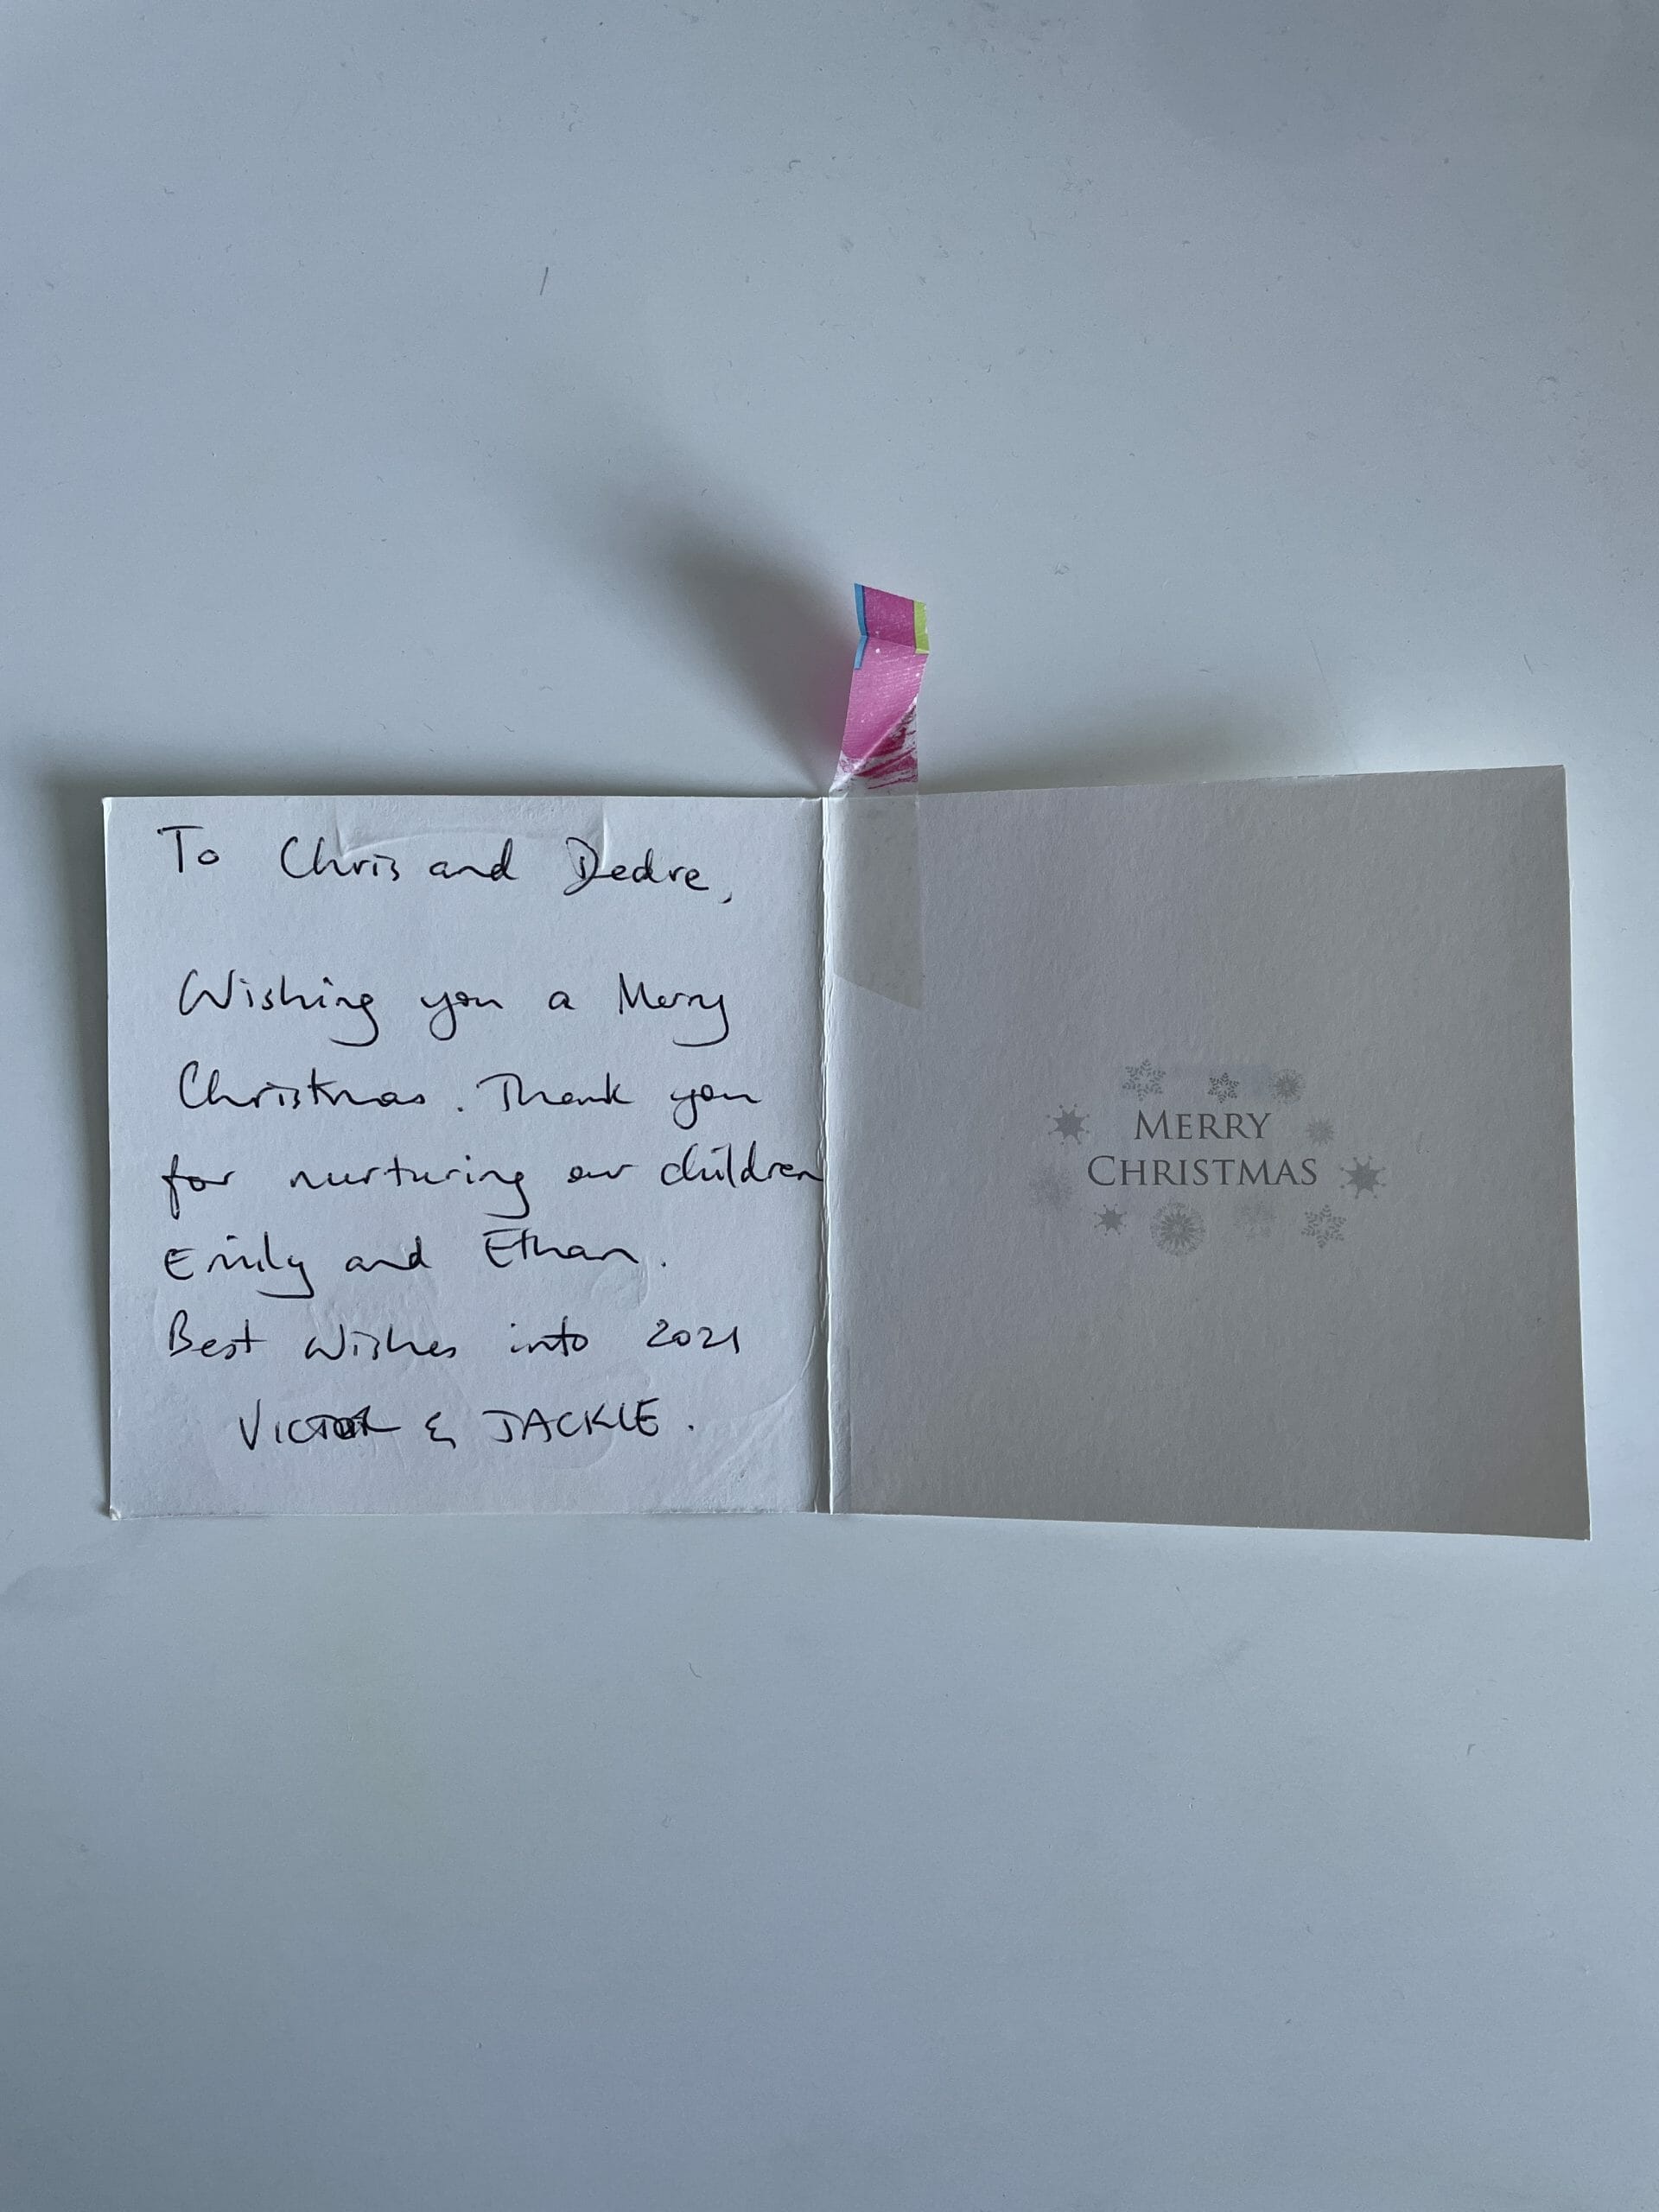 To Chris and Dedre,
Wishing you a Merry
Christmas. Thank you
for nurturing our children
Emily and Ethan.
Best Wishes into 2021
VICTOR & JACKIE.
MERRY
CHRISTMAS